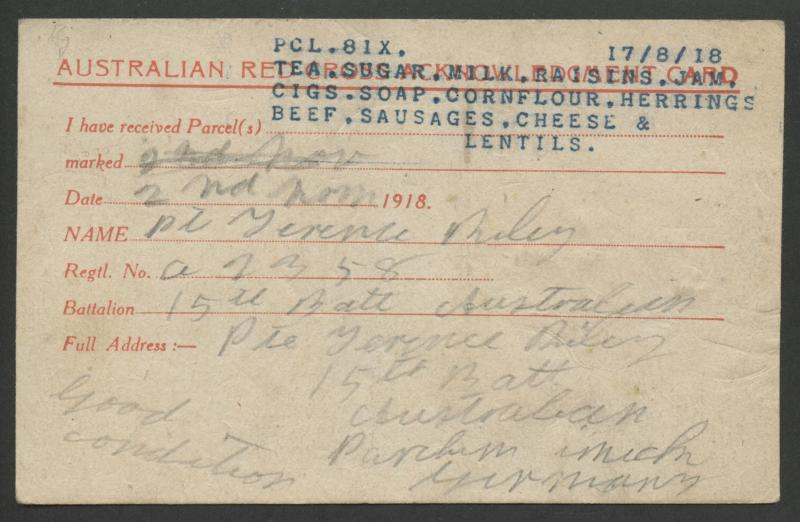 PCL.81X. 17/8/18
AUSTRALIAN RED CROSS ACKNOWLEDGMENT CARD
TEA.SUGAR.MILK.RAISINS.JAM.
CIGS.SOAP.CORNFLOUR.HERRINGS
BEEF.SAUSAGES.CHEESE &
LENTILS.
I have received Parcel(s)
marked 2nd Nov
Date 2nd Nom 1918.
NAME Pte Terence Riley
Regtl. No. 58
Battalion 15th Batt Australian
Full Address :— Pte Terence Riley
15th Batt
Australian
Parchim
Germany
Good
condition